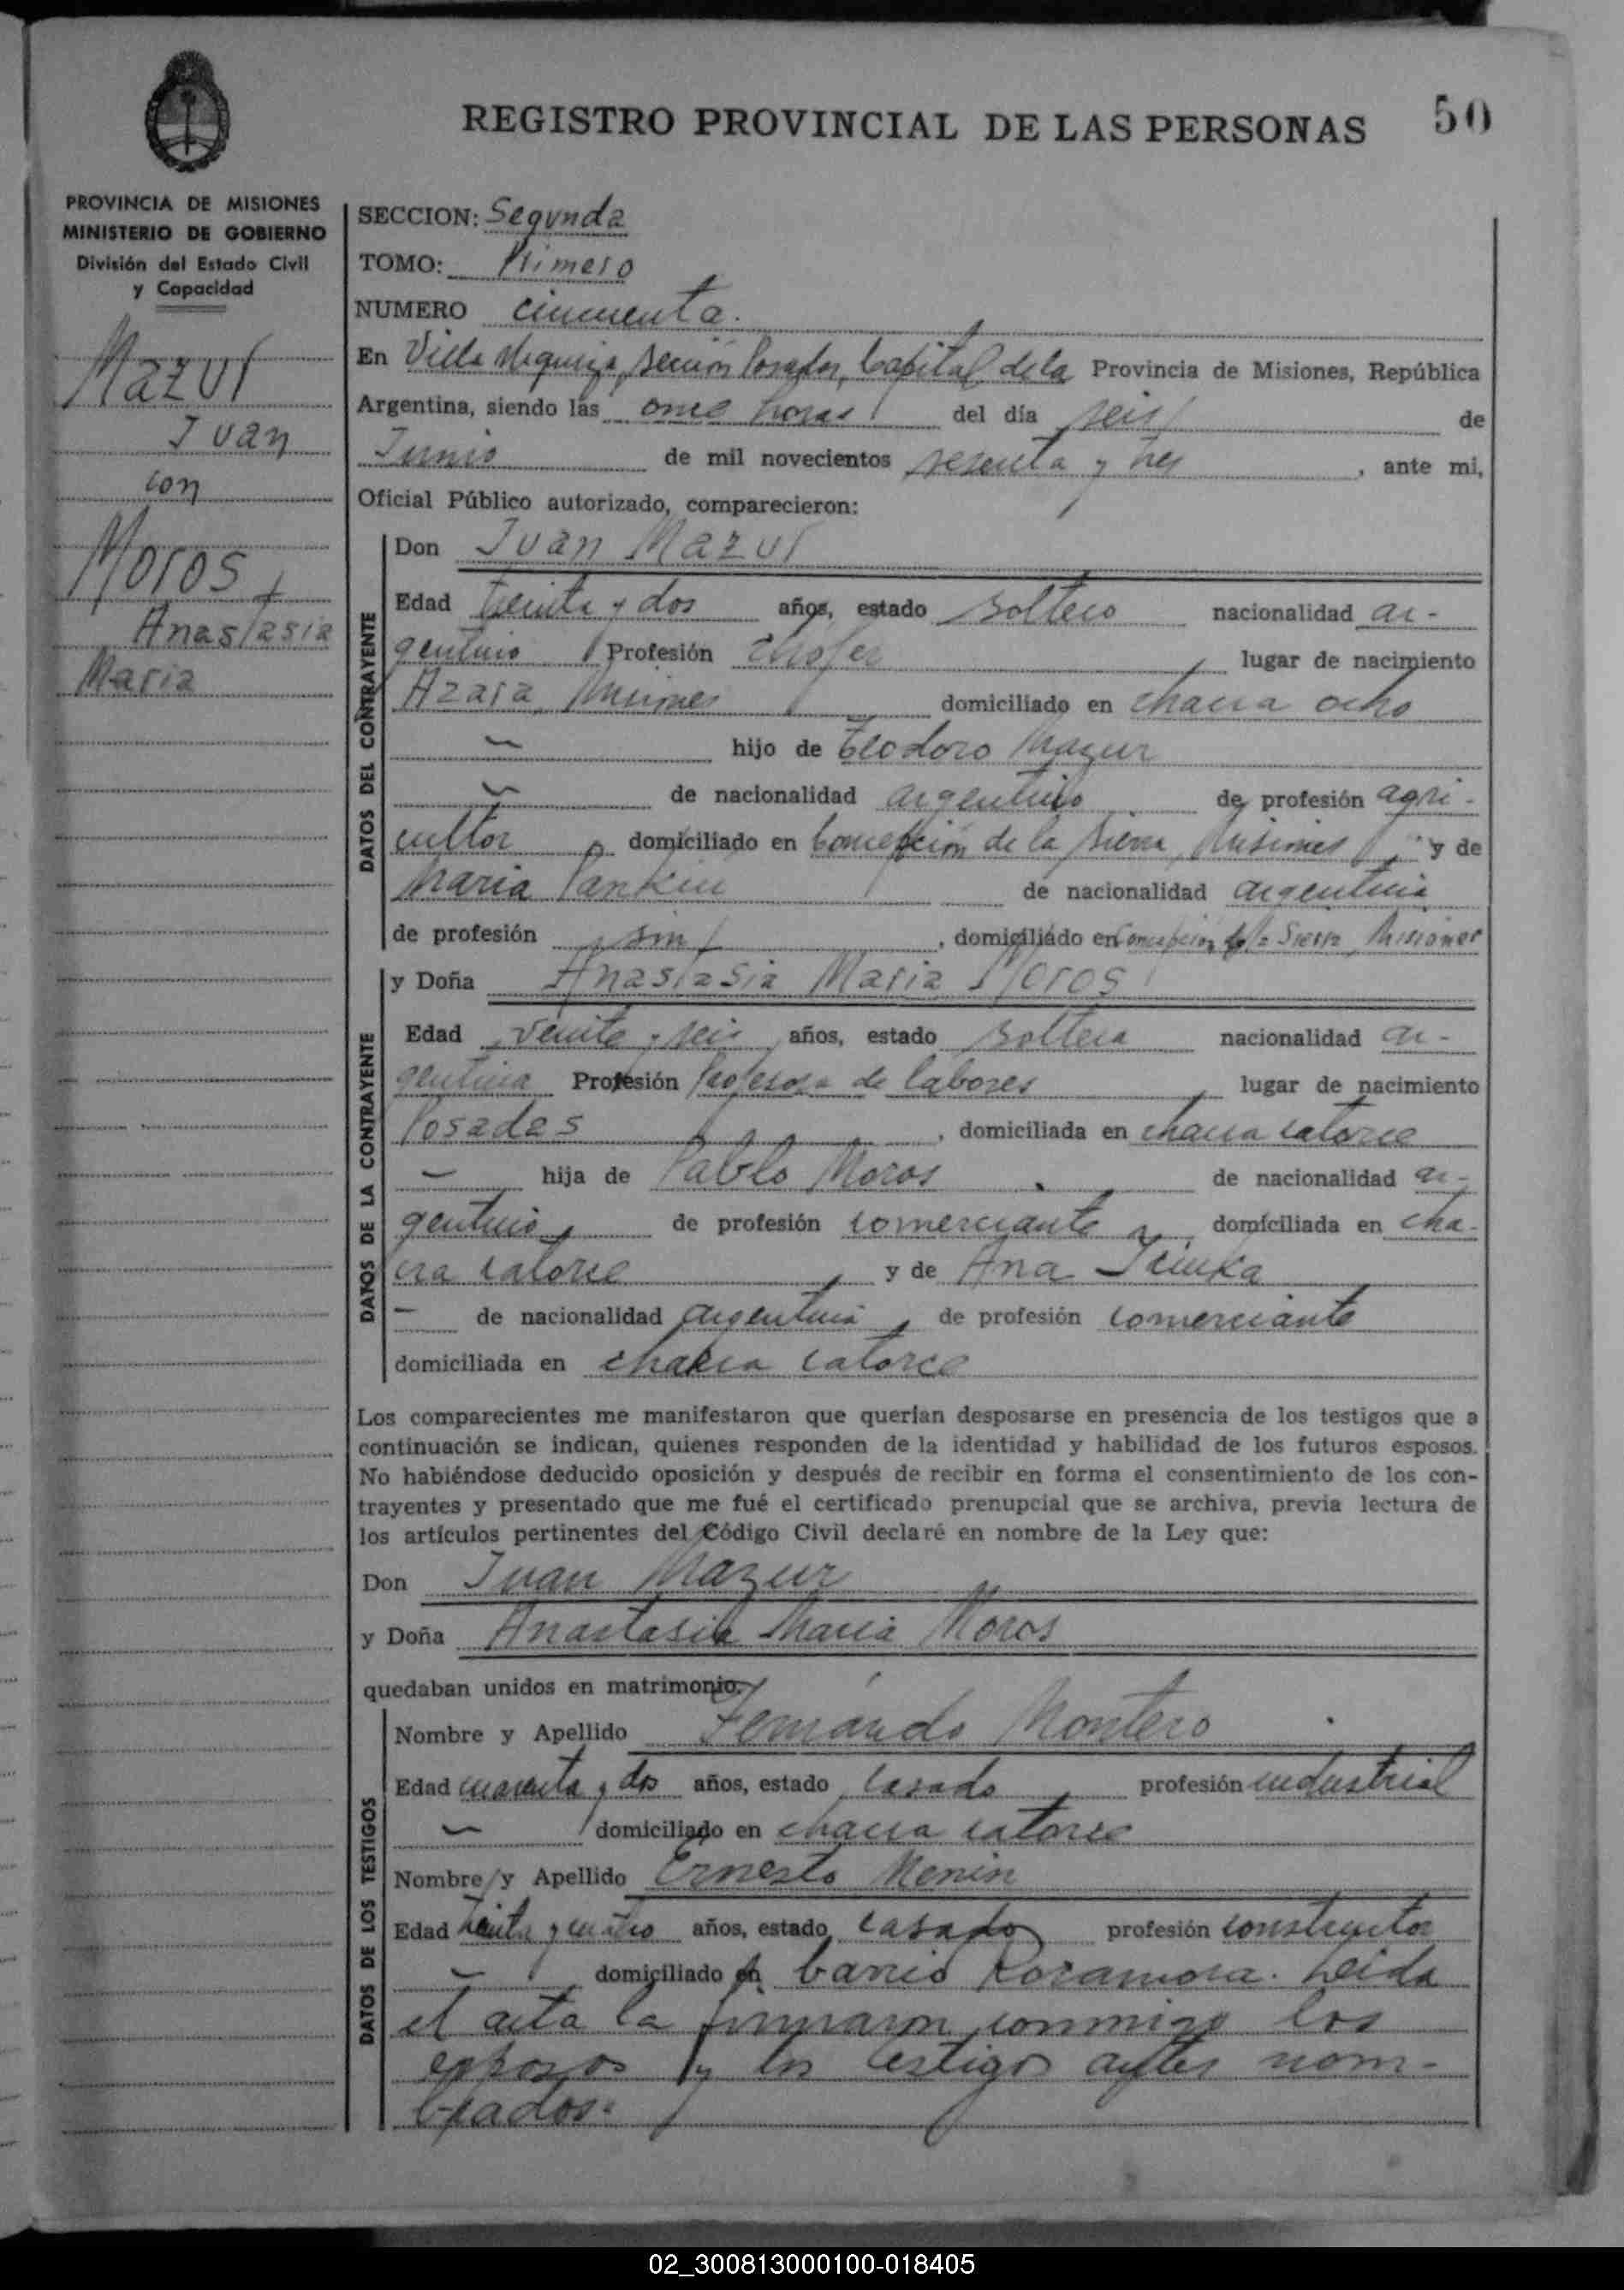 REGISTRO PROVINCIAL DE LAS PERSONAS
50
PROVINCIA DE MISIONES
MINISTERIO DE GOBIERNO
División del Estado Civil
y Capacidad
Mazur
Juan
con
Moros
Anastasia
Maria
SECCION: Segunda
TOMO: Primero
NUMERO cincuenta.
En Villa Urquiza, sección Posadas, Capital de la Provincia de Misiones, República
Argentina, siendo las once horas del día seis de
Junio de mil novecientos sesenta y tres, ante mi,
Oficial Público autorizado, comparecieron:
DATOS DEL CONTRAYENTE
Don Juan Mazur
Edad treinta y dos años, estado soltero nacionalidad ar-
gentino Profesión chofer, lugar de nacimiento
Azara, Misiones domiciliado en chacra ocho
— hijo de Teodoro Mazur
— de nacionalidad argentino de profesión agri-
cultor domiciliado en Concepción de la Sierra, Misiones, y de
Maria Pankiu de nacionalidad argentina
de profesión sin, domiciliado en Concepción de la Sierra, Misiones
DATOS DE LA CONTRAYENTE
y Doña Anastasia Maria Moros
Edad veinte y seis años, estado soltera nacionalidad ar-
gentina Profesión Profesora de labores, lugar de nacimiento
Posadas, domiciliada en chacra catorce
— hija de Pablo Moros de nacionalidad ar-
gentino, de profesión comerciante, domiciliada en cha-
cra catorce, y de Ana
— de nacionalidad argentina, de profesión comerciante
domiciliada en chacra catorce
Los comparecientes me manifestaron que querían desposarse en presencia de los testigos que a
continuación se indican, quienes responden de la identidad y habilidad de los futuros esposos.
No habiéndose deducido oposición y después de recibir en forma el consentimiento de los con-
trayentes y presentado que me fué el certificado prenupcial que se archiva, previa lectura de
los artículos pertinentes del Código Civil declaré en nombre de la Ley que:
Don Juan Mazur
y Doña Anastasia Maria Moros
quedaban unidos en matrimonio.
DATOS DE LOS TESTIGOS
Nombre y Apellido Fernando Montero
Edad cuarenta y dos años, estado casado, profesión industrial
— domiciliado en chacra catorce
Nombre y Apellido Ernesto Menin
Edad treinta y cuatro años, estado casado profesión constructor
— domiciliado en barrio Rocamora. Leida
el acta la firmaron conmigo los
esposos y los testigos antes nom-
brados.
02_300813000100-018405